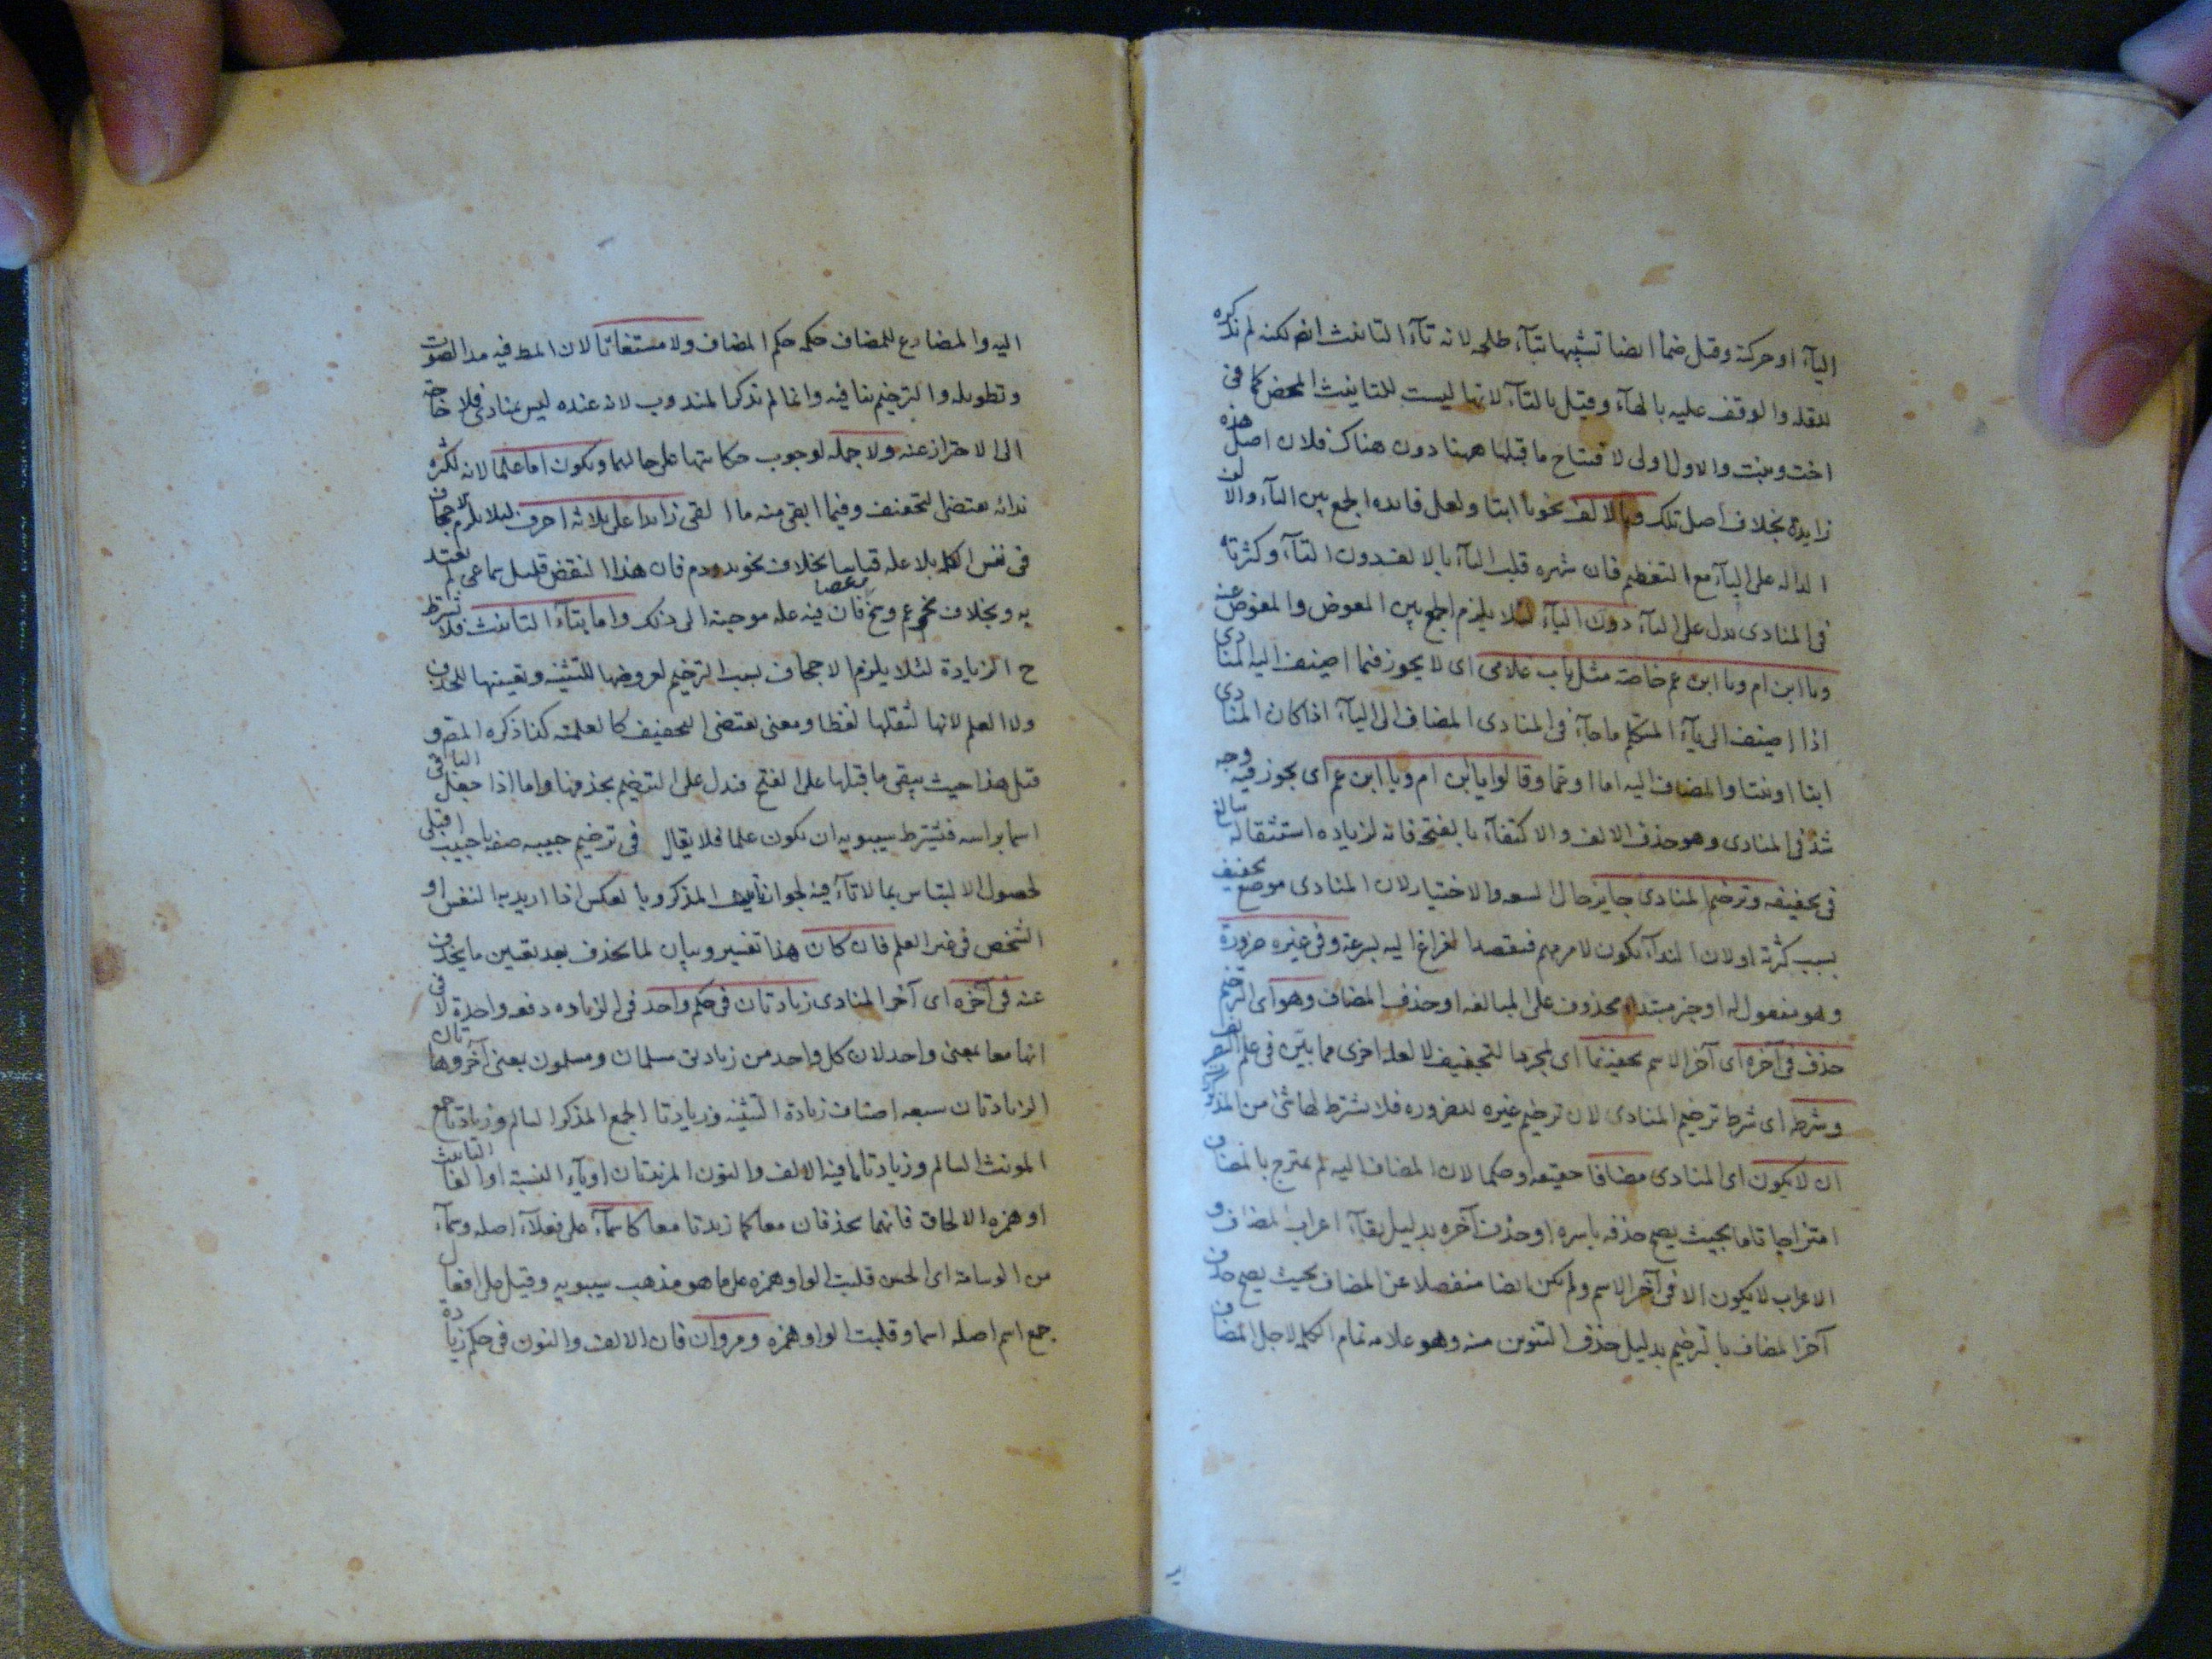 الياء او حركة وقيل ضما ايضا تشبيها بتاء طلحه لانه تاء التانيث ايضا لكنه لم نذكره
للقله والوقف عليه بالهاء وقيل بالتاء لانها ليست للتانيث المحض كما فى
اخت وبنت والاول اولى لانفتاح ما قبلها ههنا دون هناك فلان اصل هذه
زايدة بخلاف اصل تلك وبالالف نحو يا ابتا ولعل فايده الجمع بين التاء والالف
الداله على الياء مع التعظيم فان شهره قلب الياء بالالف دون التاء وكثرته
فى المنادى يدل على الياء دون الياء لئلا يلزم الجمع بين المعوض والمعوض عنه
ويا ابن ام ويا ابن عم خاصة مثل باب غلامى اى لا يجوز فيما اضيف اليه المنادى
اذا اضيف الى ياء المتكلم ما جاء فى المنادى المضاف الى الياء اذا كان المنادى
ابنا او بنتا والمضاف اليه اما او عما وقالوا يا ابن ام ويا ابن عم اى يجوز فيه وجه
شذ فى المنادى وهو حذف الالف والاكتفاء بالفتحة فانه لزياده استثقاله بالغ
فى تخفيفه وترخيم المنادى جايز حال السعه والاختيار لان المنادى موضع تخفيف
بسبب كثرته اولان النداء يكون لامر مهم فيقصد الفراغ اليه بسرعة وفى غيره ضرورة
وهو مفعول له او خبر مبتداء محذوف على المبالغه او حذف المضاف وهو اى الترخيم
حذف فى آخره اى آخر الاسم تخفيفا اى لمجرد التخفيف لا لعلة اخرى مما بيّن فى علم الصرف
وشرطه اى شرط ترخيم المنادى لان ترخيم غيره للضروره فلا يشترط لها شئ من المذكور
ان لا يكون اى المنادى مضافا حقيقه او حكما لان المضاف اليه لم يمتزج بالمضاف
امتزاجا تاما بحيث يصح حذفه باسره او حذف آخره بدليل بقاء اعراب المضاف و
الاعراب لا يكون الا فى آخر الاسم ولم يكن ايضا منفصلا عن المضاف بحيث يصح حذف
آخر المضاف بالترخيم بدليل حذف التنوين منه وهو علامه تمام الكلمه لاجل المضاف
اليه والمضارع للمضاف حكمه حكم المضاف ولا مستغاثا لان المط فيه مد الصوت
وتطويله والترخيم ينافيه وانما لم نذكر المندوب لانه عنده ليس بمنادى فلا حاجة
الى الاحتراز عنه ولا جمله لوجوب حكايتها على حالهما ويكون اما علما لانه لكثره
ندائه يقتضى التخفيف وفيما ابقى منه ما القى زايدا على ثلاثه احرف لئلا يلزم الاجحاف
فى نفس الكلمه بلا عله قياسا بخلاف نحو يد ودم فان هذا النقض قليل سماعى لم يعتد
به وبخلاف نحو عصا فان فيه عله موجبة الى ذلك واما بتاء التانيث فلا تشترط
ح الزيادة لئلا يلزم الاجحاف بسبب الترخيم لعروضها للتثنيه وتعينها للحذف
ولا العلم لانها لثقلها لفظا ومعنى يقتضى التخفيف كالعلميه كذا ذكره المص و
قيل هذا حيث يبقى ما قبلها على الفتح فيدل على الترخيم بحذفها واما اذا جعل الباقى
اسما براسه فيشترط سيبويه ان يكون علما فلا يقال فى ترخيم حبيبه صفه يا حبيب اقبلى
لحصول الالتباس بما لا تاء فيه لجواز تانيث المذكر وبالعكس اذا اريد به النفس او
الشخص فى غير العلم فان كان هذا تفسير وبيان لما يحذف بعد تعيين ما يحذف
عنه فى آخره اى آخر المنادى زيادتان فى حكم واحد فى الزياده دفعه واحدة لا فى
انها معا بمعنى واحد لان كل واحد من زيادتى مسلمان ومسلمون بمعنى آخر وهاتان
الزيادتان سبعه اصناف زيادة التثنيه وزيادتا الجمع المذكر السالم وزيادتا جمع
المونث السالم وزيادتا ما فيه الالف والنون المزيدتان او ياء النسبة او الفا التانيث
او همزه الالحاق فانهما يحذفان معا كما زيدتا معا كاسماء على فعلاء اصله وسماء
من الوسامة اى الحسن قلبت الواو همزه على ما هو مذهب سيبويه وقيل على افعال
جمع اسم اصله اسماو قلبت الواو همزه ومروان فان الالف والنون فى حكم زيادة